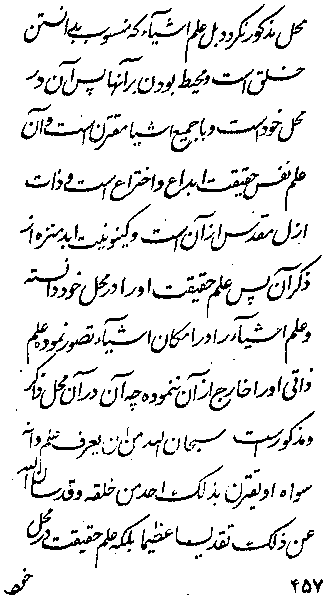 محل مذکور نکردد بل علم اشیآء که منسوب بدانستن
خلق است و محیط بودن بر آنها پس آن در
محل خود است و با جمیع اشیا مقترن است و آن
علم نفس حقیقت ابداع و اختراع است و ذات
ازل مقدس از آن است و کینونیت ابد منزه از
ذکر آن پس علم حقیقت او را در محل خود دانسته
و علم اشیآء را در امکان اشیآء تصور نموده علم
ذاتی او را خارج از آن ننموده چه آن در آن محل ذاکر
و مذکور است سبحان الله من ان یعرف علم ذاته
سواه او یقترن بذلک احد من خلقه و قدسان الله
عن ذلک تقدیسا عظیما بلکه علم حقیقت در محل
۴۵۷